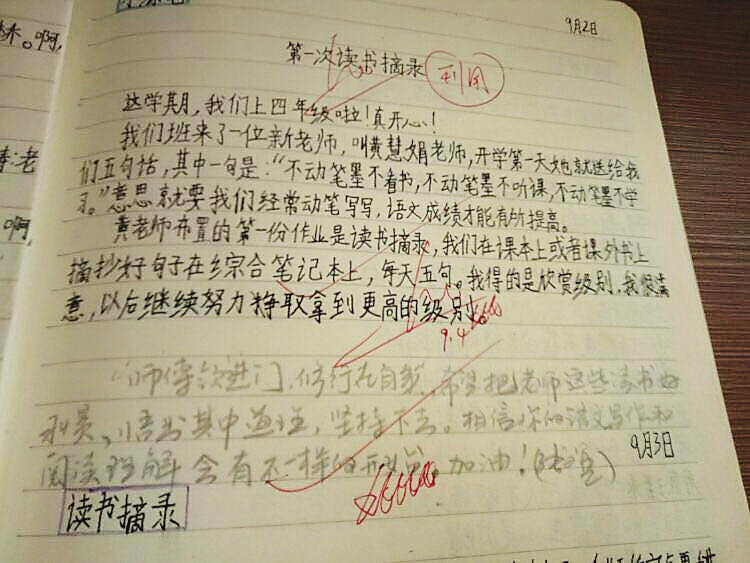 9月2日
第一次读书摘录
刊用
这学期，我们上四年级啦！真开心！
我们班来了一位新老师，叫黄慧娟老师，开学第一天她就送给我
们五句话，其中一句是：“不动笔墨不看书，不动笔墨不听课，不动笔墨不学
习。”意思就要我们经常动笔写写，语文成绩才能有所提高。
黄老师布置的第一份作业是读书摘录，我们在课本上或者课外书上
摘抄好句子在综合笔记本上，每天五句。我得的是欣赏级别，我很满
意，以后继续努力争取拿到更高的级别。
9.4
师傅领进门，修行在自我，希望把老师这些读书好
悟出其中道理，坚持下去。相信你的语文写作和
阅读理解会有不一样的 加油！
9月3日
读书摘录